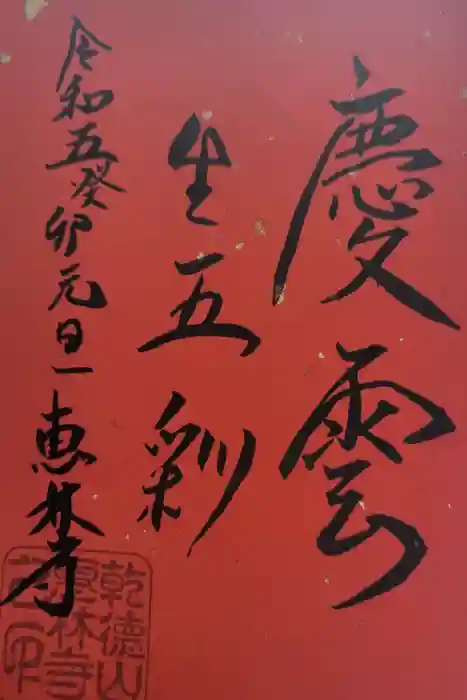 慶雲
生五彩
令和五癸卯元旦 恵林寺
乾徳山
恵林寺